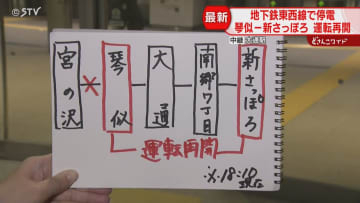 ©STV
最新
地下鉄東西線で停電
琴似ー新さっぽろ 運転再開
中継
どさんこワイド
宮の沢
×
琴似
大通
南郷7丁目
新さっぽろ
運転再開
※18:10
現在